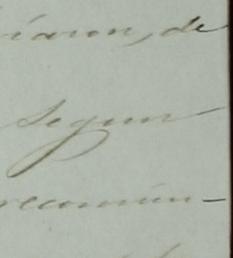 iaron, de
segun
recomun-